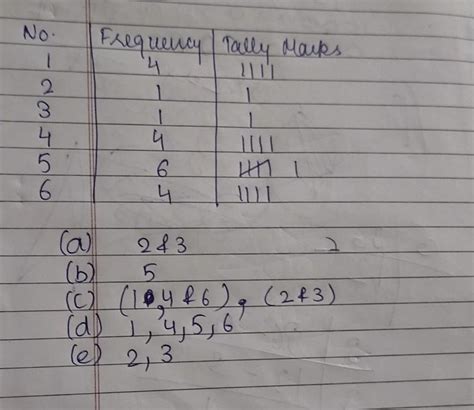 No. Frequency Tally Marks
1 4 ||||
2 1 |
3 1 |
4 4 ||||
5 6 ~~||||~~ |
6 4 ||||
(a) 2 & 3
(b) 5
(c) (1, 4 & 6), (2 & 3)
(d) 1, 4, 5, 6
(e) 2, 3